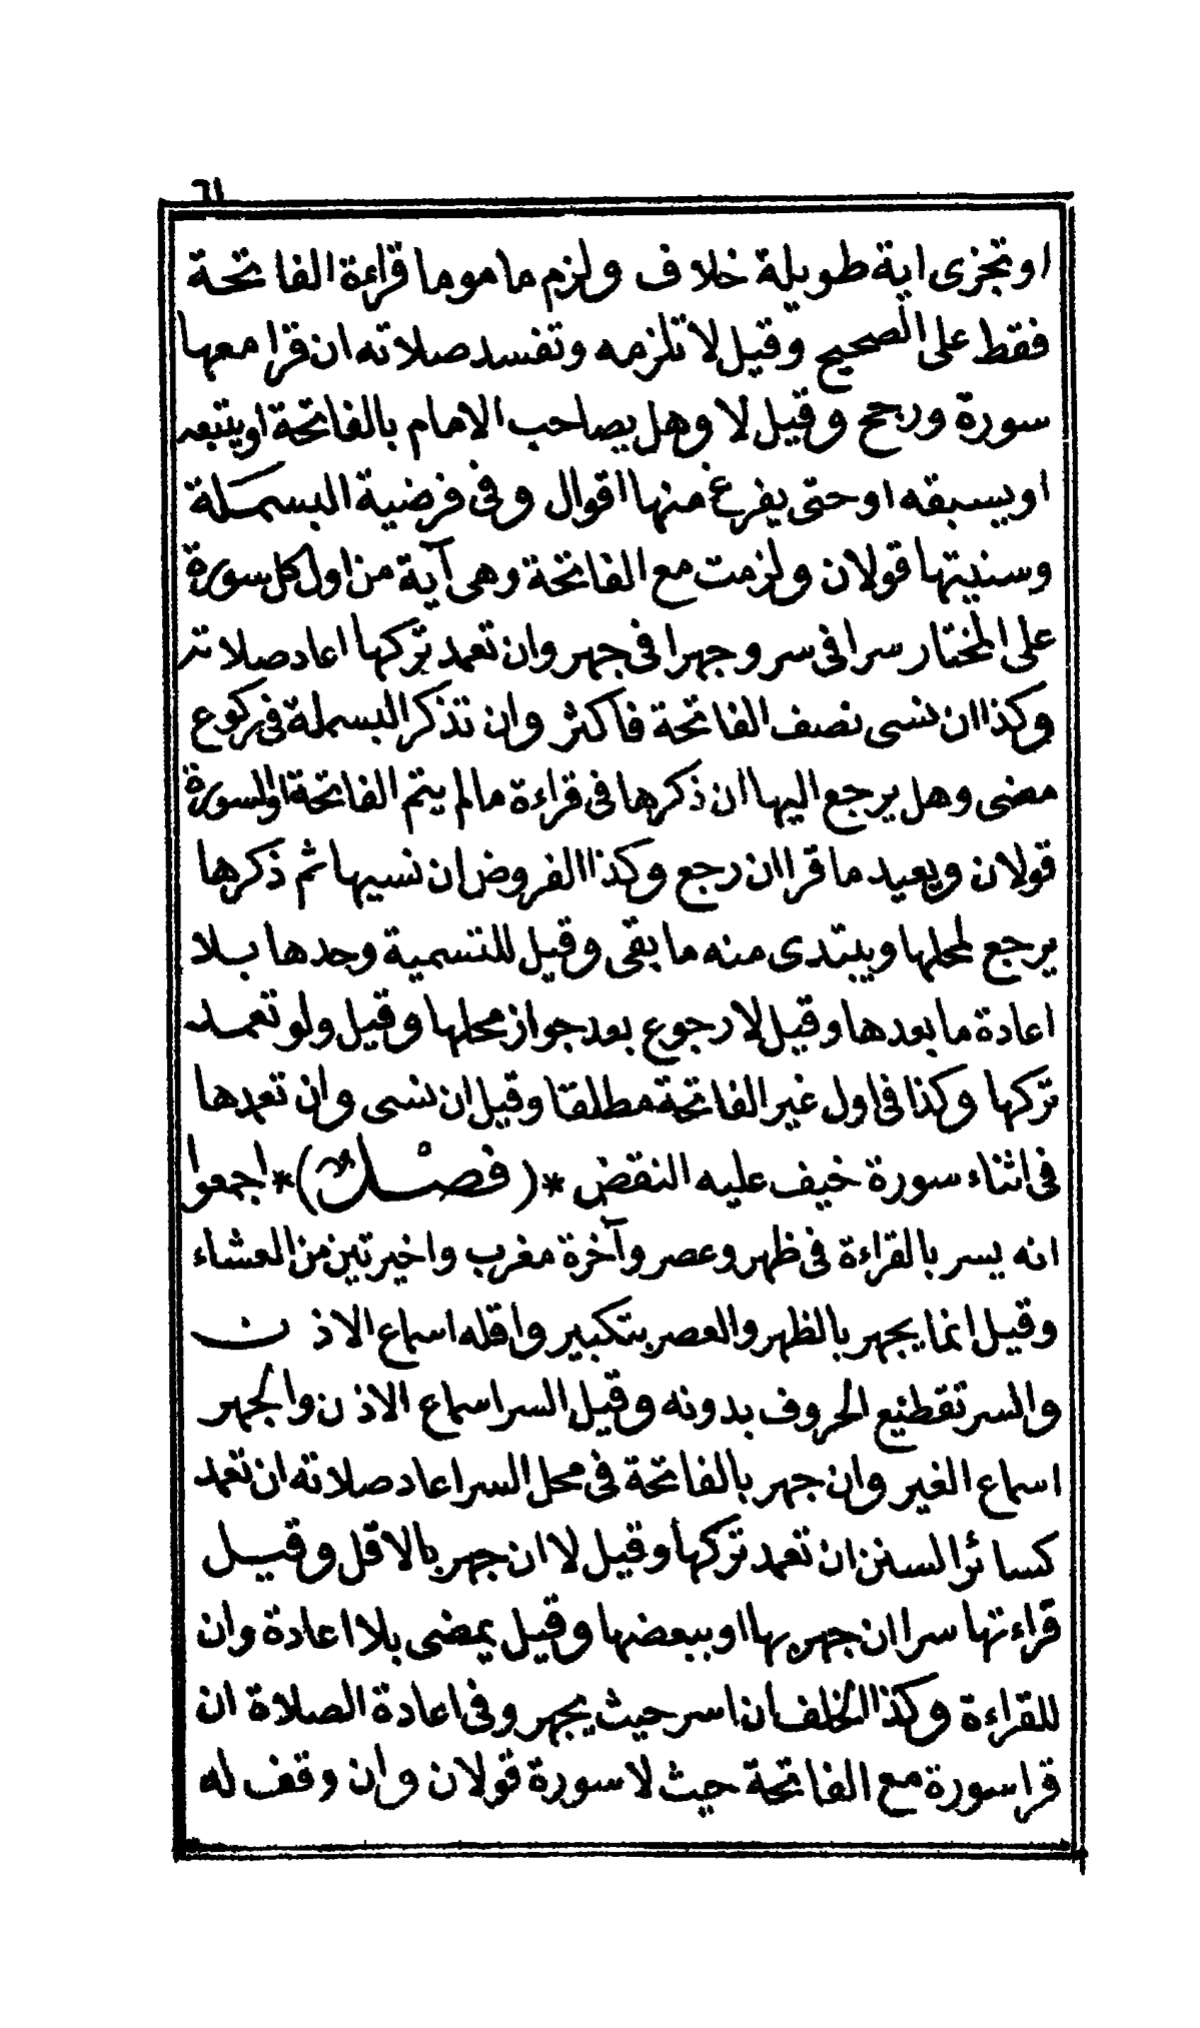 ٦١
او تجزى اية طويلة خلاف ولزم ماموما قراءة الفاتحة
فقط على الصحيح وقيل لا تلزمه وتفسد صلاته ان قرا معها
سورة ورجح وقيل لا وهل يصاحب الامام بالفاتحة او يتبعه
او يسبقه او حتى يفرغ منها اقوال وفى فرضية البسملة
وسنيتها قولان ولزمت مع الفاتحة وهى آية من اول كل سورة
على المختار سرا فى سر وجهرا فى جهر وان تعمد تركها اعاد صلاته
وكذا ان نسى نصف الفاتحة فاكثر وان تذكر البسملة فى ركوع
مضى وهل يرجع اليها ان ذكرها فى قراءة ما لم يتم الفاتحة او السورة
قولان ويعيد ما قرا ان رجع وكذا الفروض ان نسيها ثم ذكرها
يرجع لمحلها ويبتدى منه ما بقى وقيل للتسمية وحدها بلا
اعادة ما بعدها وقيل لا رجوع بعد جواز محلها وقيل ولو تعمد
تركها وكذا فى اول غير الفاتحة مطلقا وقيل ان نسى وان تعمدها
فى اثناء سورة خيف عليه النقض *(فصل)* اجمعوا
انه يسر بالقراءة فى ظهر وعصر وآخرة مغرب واخيرتين من العشاء
وقيل انما يجهر بالظهر والعصر بتكبير واقله اسماع الاذن
والسر تقطيع الحروف بدونه وقيل السر اسماع الاذن والجهر
اسماع الغير وان جهر بالفاتحة فى محل السر اعاد صلاته ان تعمد
كسائر السنن ان تعمد تركها وقيل لا ان جهر بالاقل وقيل
قراءتها سرا ان جهر بها او ببعضها وقيل يمضى بلا اعادة وان
للقراءة وكذا الخلف ان اسر حيث يجهر وفى اعادة الصلاة ان
قرا سورة مع الفاتحة حيث لا سورة قولان وان وقف له